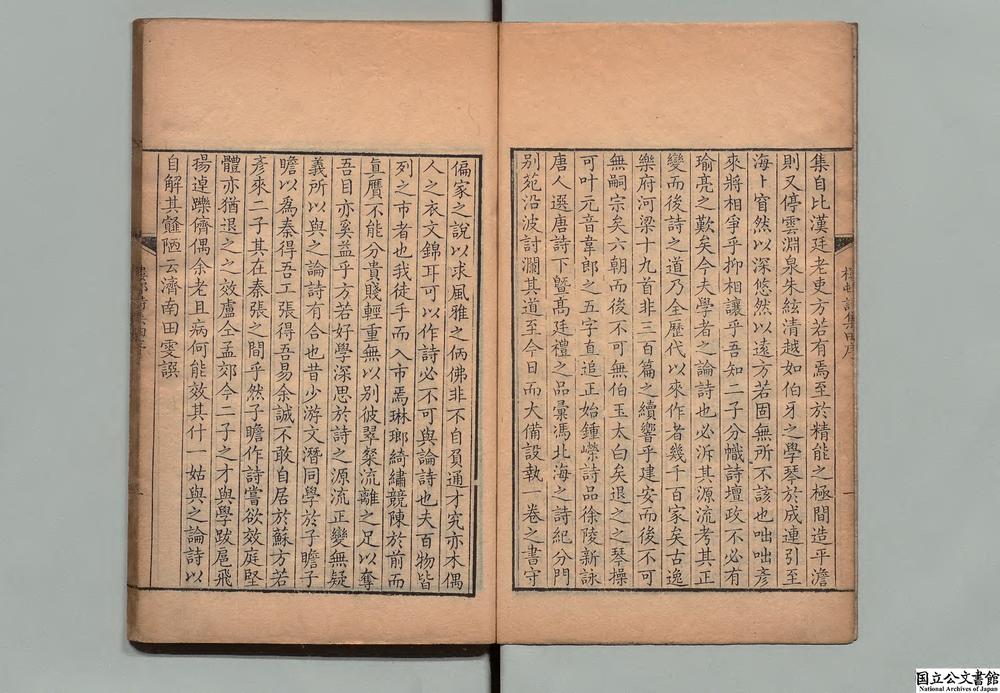 集自比漢廷老吏方若有焉至於精能之極間造平澹
則又停雲淵泉朱絃清越如伯牙之學琴於成連引至
海上窅然以深悠然以遠方若固無所不該也咄咄彥
來將相爭乎抑相讓乎吾知二子分幟詩壇政不必有
瑜亮之歎矣今夫學者之論詩也必泝其源流考其正
變而後詩之道乃全歷代以來作者幾千百家矣古逸
樂府河梁十九首非三百篇之續響乎建安而後不可
無嗣宗矣六朝而後不可無伯玉太白矣退之之琴操
可叶元音韋郎之五字直追正始鍾嶸詩品徐陵新詠
唐人選唐詩下暨高廷禮之品彙馮北海之詩紀分門
別苑沿波討瀾其道至今日而大備設執一卷之書守
偏家之說以求風雅之俩佛非不自負通才究亦木偶
人之衣文錦耳可以作詩必不可與論詩也夫百物皆
列之市者也我徒手而入市焉琳瑯綺繡競陳於前而
真贗不能分貴賤輕重無以別彼翠粲流離之足以奪
吾目亦奚益乎方若好學深思於詩之源流正變無疑
義所以與之論詩有合也昔少游文潛同學於子瞻子
瞻以為秦得吾工張得吾易余誠不敢自居於蘇方若
彥來二子其在秦張之間乎然子瞻作詩嘗欲效庭堅
體亦猶退之之效盧仝孟郊今二子之才與學跋扈飛
揚逴躒儕偶余老且病何能效其什一姑與之論詩以
自解其䪥陋云濟南田雯譔